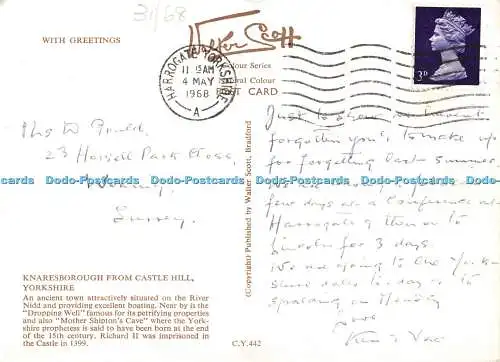 31/68
WITH GREETINGS
Walter Scott
Colour Series
Natural Colour
POST CARD
HARROGATE YORKSHIRE
11 15 AM
4 MAY
1968
A
3D
Just to show we haven't
forgotten you & to make up
for forgetting last summer.
few days at a Conference at
Harrogate & then on to
Lincoln for 3 days.
We are going to the York-
shire dales to-day & to
Spalding on Monday
Love
Mrs W Gould,
23 Horsell Park Close,
Woking,
Surrey.
Dodo-Postcards Dodo-Postcards Dodo-Postcards
(Copyright) Published by Walter Scott, Bradford
KNARESBOROUGH FROM CASTLE HILL,
YORKSHIRE
An ancient town attractively situated on the River
Nidd and providing excellent boating. Near by is the
"Dropping Well" famous for its petrifying properties
and also "Mother Shipton's Cave" where the York-
shire prophetess is said to have been born at the end
of the 15th century. Richard II was imprisoned in
the Castle in 1399.
C.Y.442